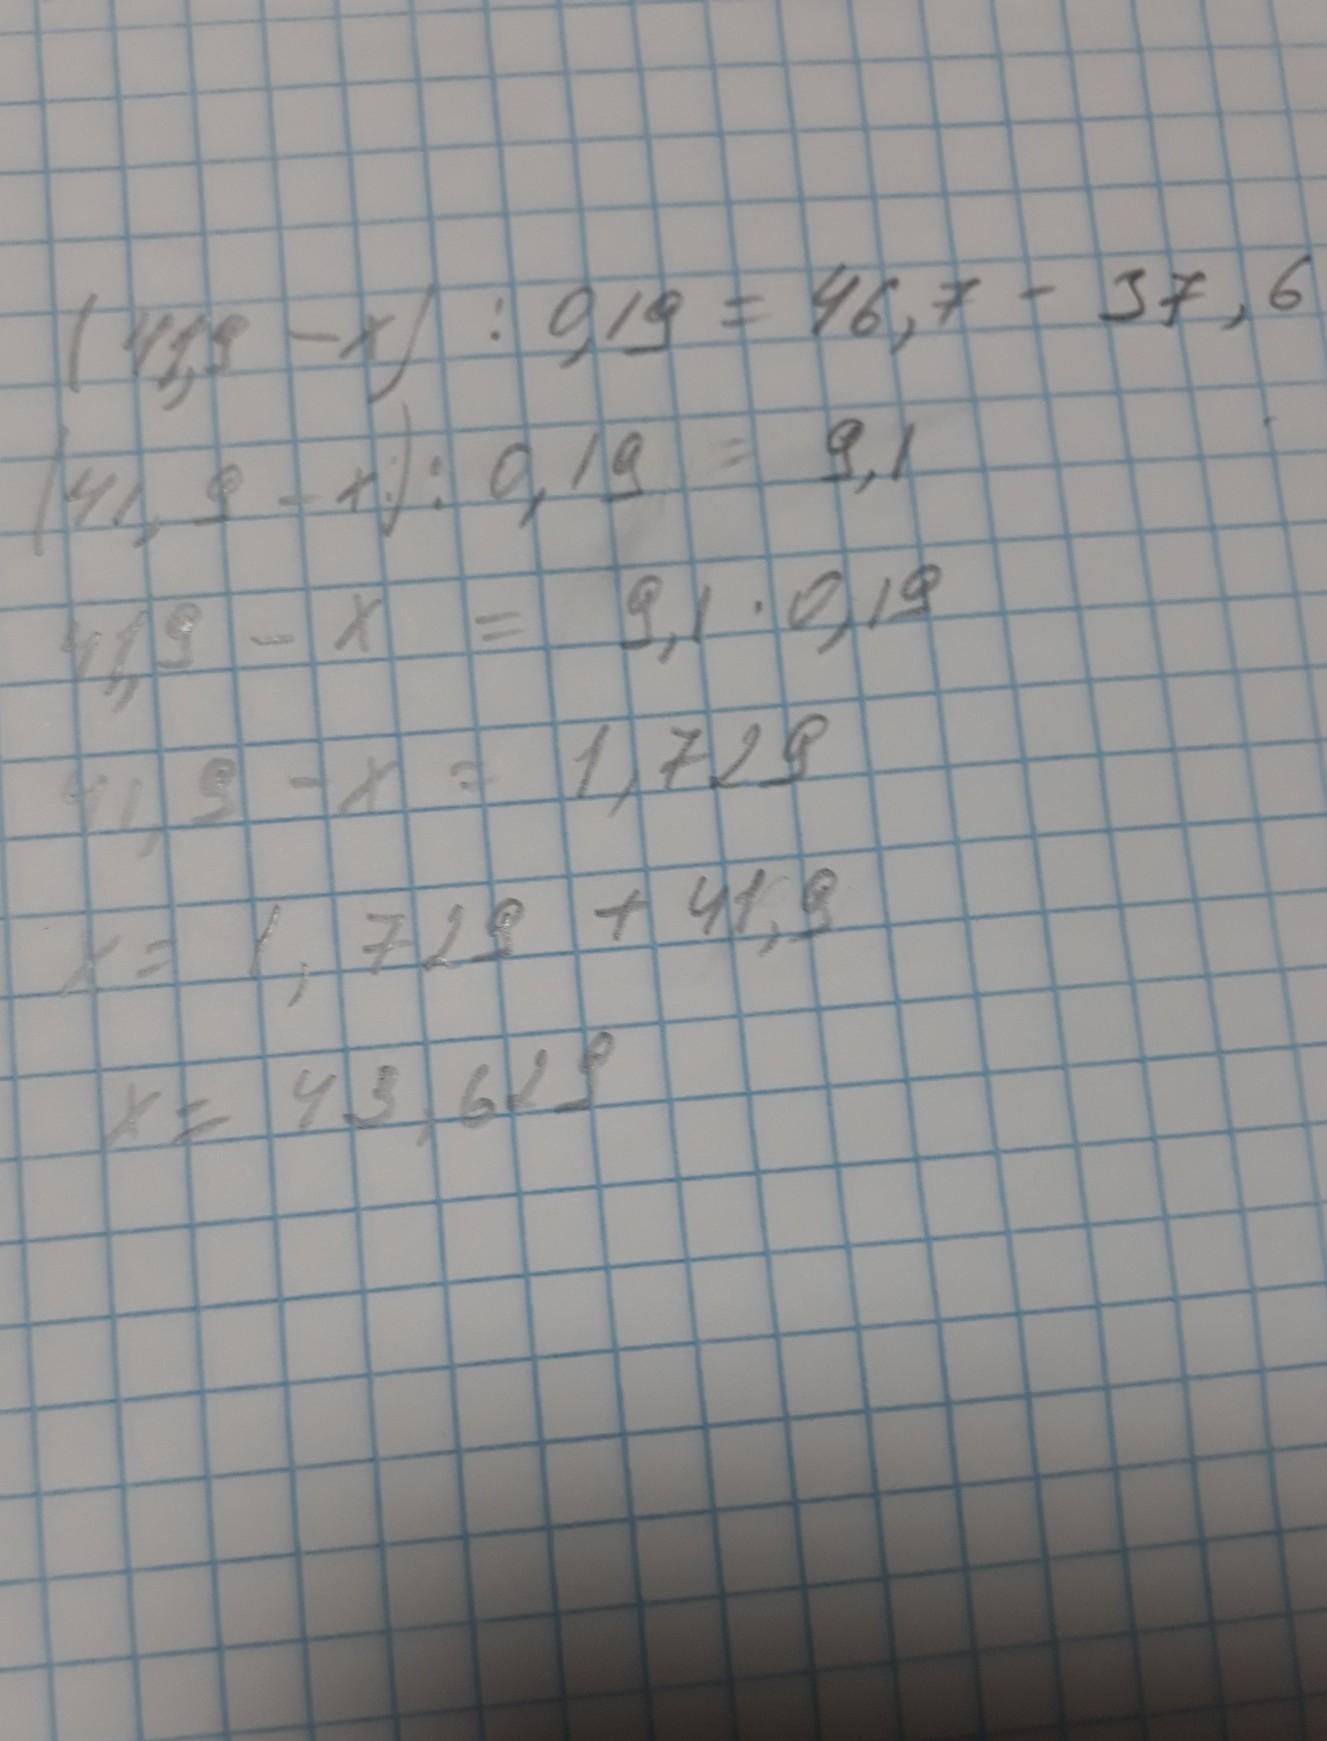 (41,9 - x) : 0,19 = 46,7 - 37,6
(41,9 - x) : 0,19 = 9,1
41,9 - x = 9,1 · 0,19
41,9 - x = 1,729
x = 1,729 + 41,9
x = 43,629